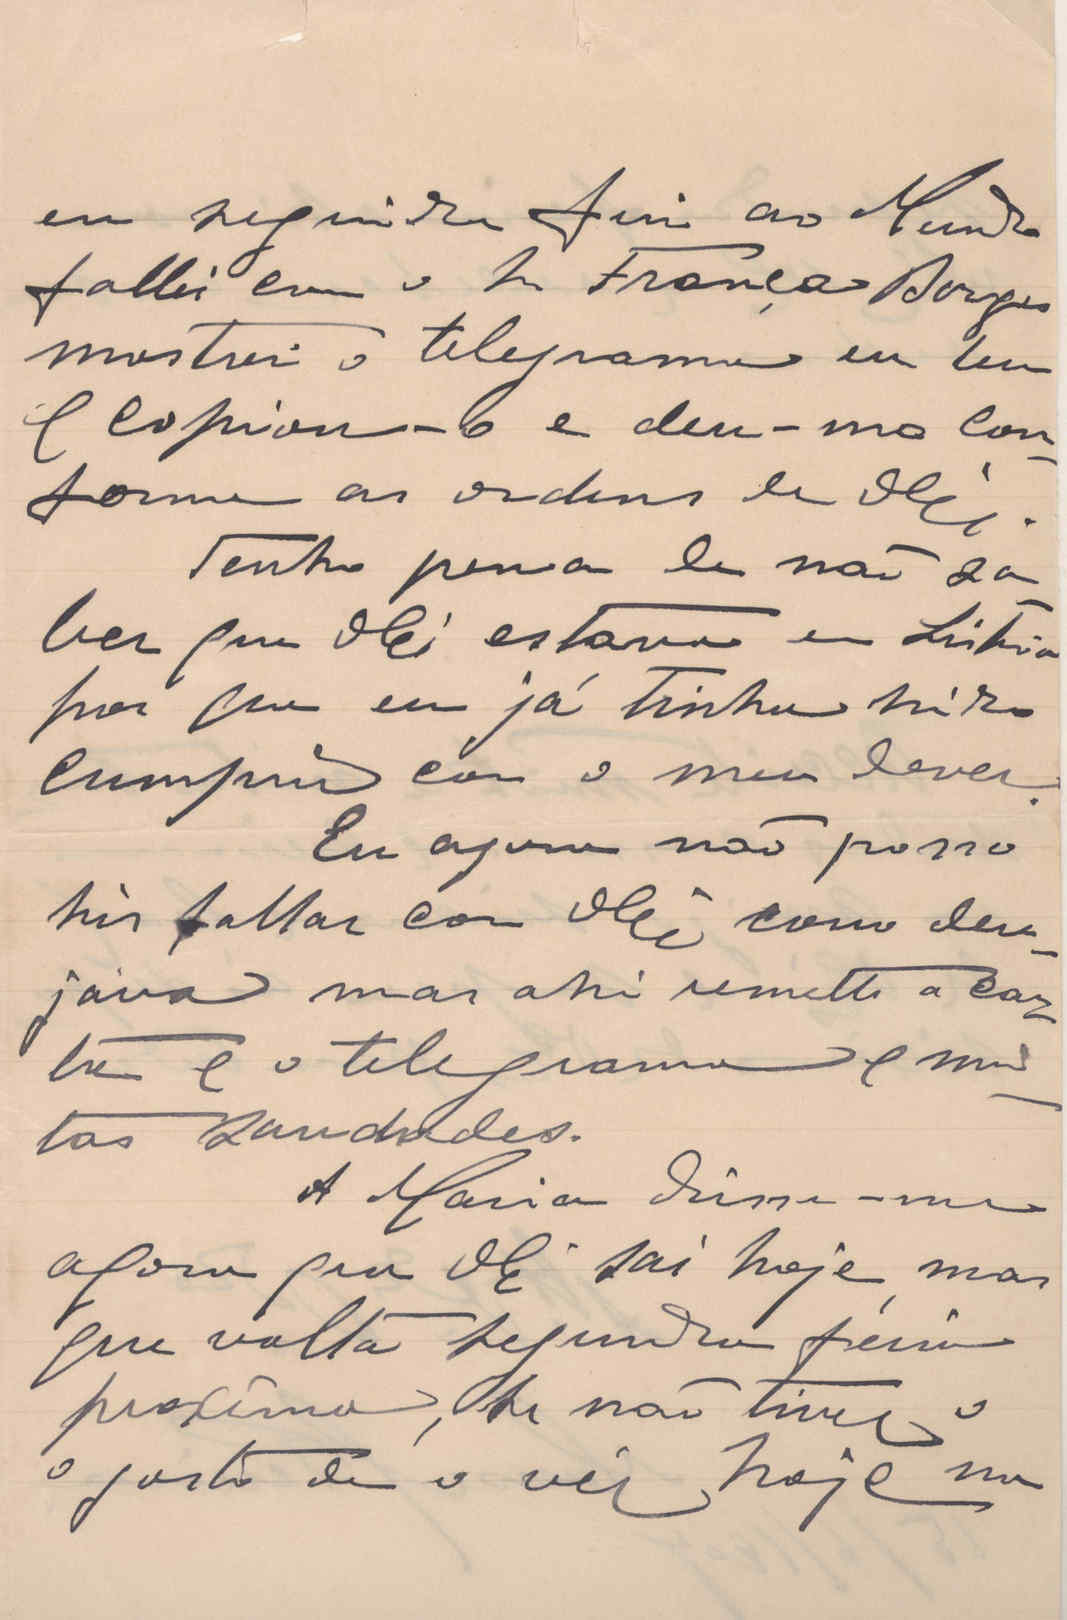 em seguida fui ao Mundo
fallei com o Sr França Borges
mostrei o telegrama eu leu
e copiou-o e deu-mo con-
forme as ordens de VEx.
Tenho pena de não sa
ber que VEx estava em Lisboa
por que eu já tinha hido
cumprir com o meu dever.
Eu agora não posso
hir fallar com VEx como dese-
java mas ahi remetto a car
ta e o telegrama e mui
tas saudades.
A Maria disse-me
agora que VEx sai hoje, mas
que volta segunda feira
proxima, se não tiver o
o gosto de o vêr hoje no